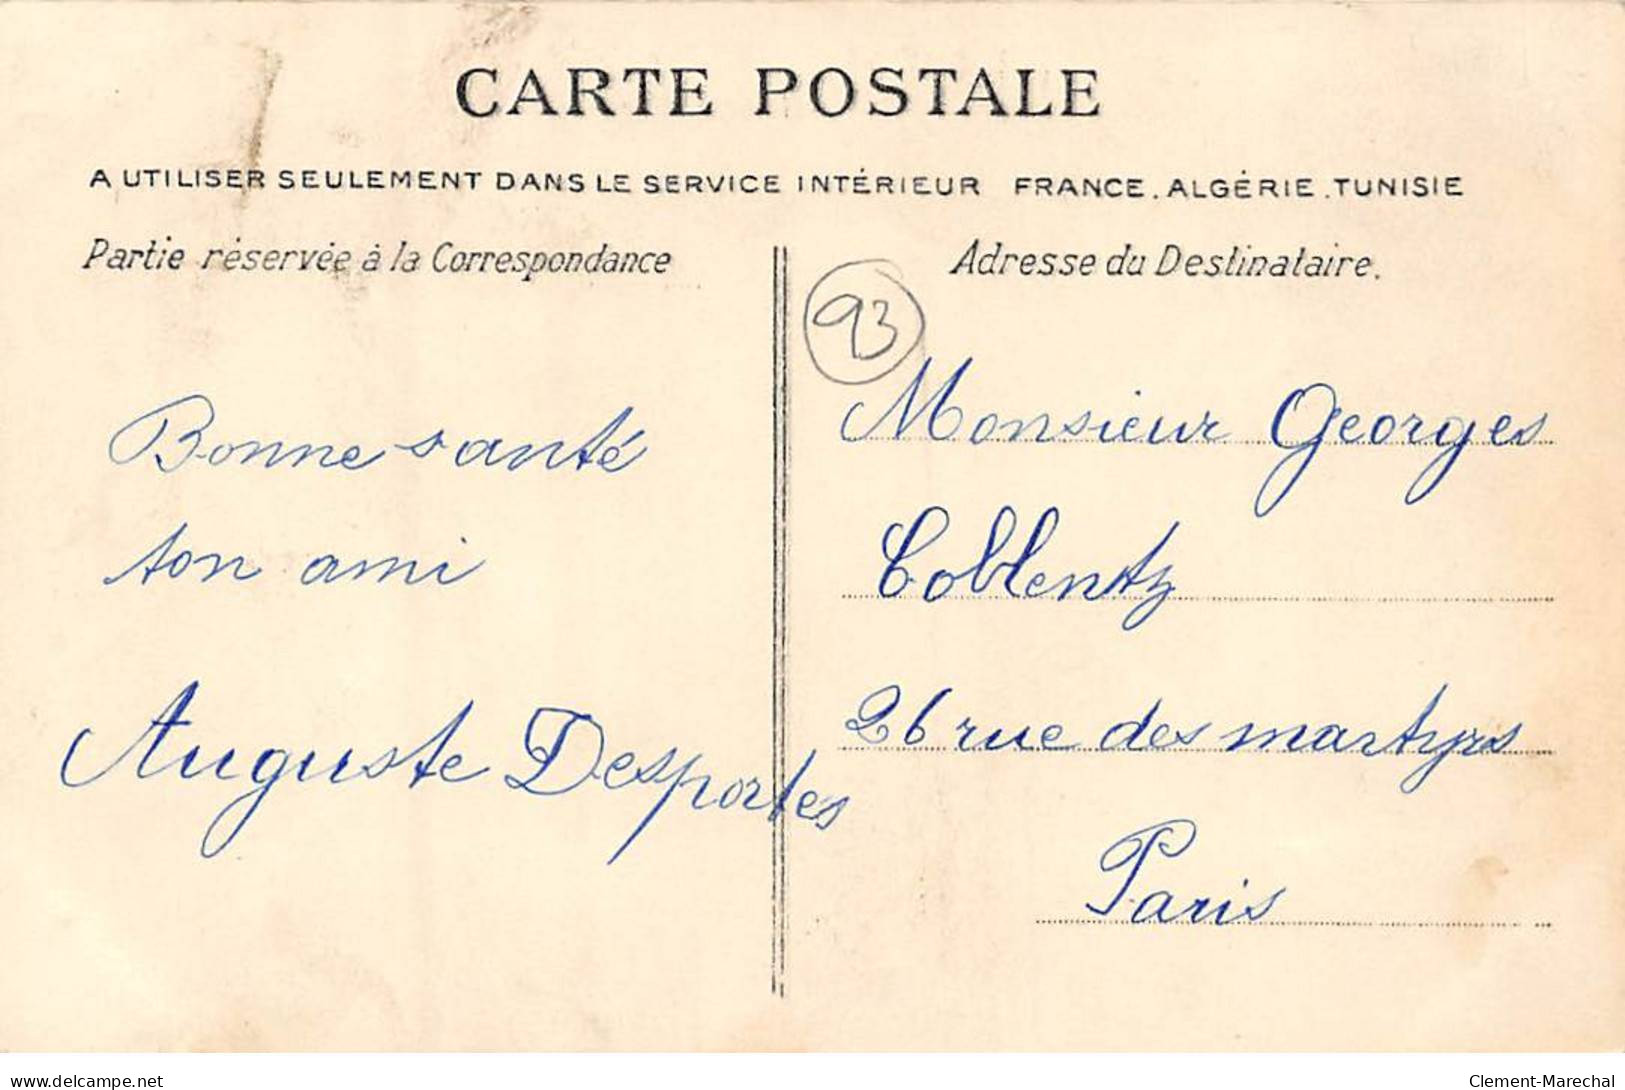 CARTE POSTALE
A UTILISER SEULEMENT DANS LE SERVICE INTÉRIEUR FRANCE. ALGÉRIE. TUNISIE
Partie réservée à la Correspondance
Bonne santé
ton ami
Auguste Desportes
Adresse du Destinataire.
93
Monsieur Georges
Coblentz
26 rue des martyrs
Paris
delcampe.net
Clement-Marechal